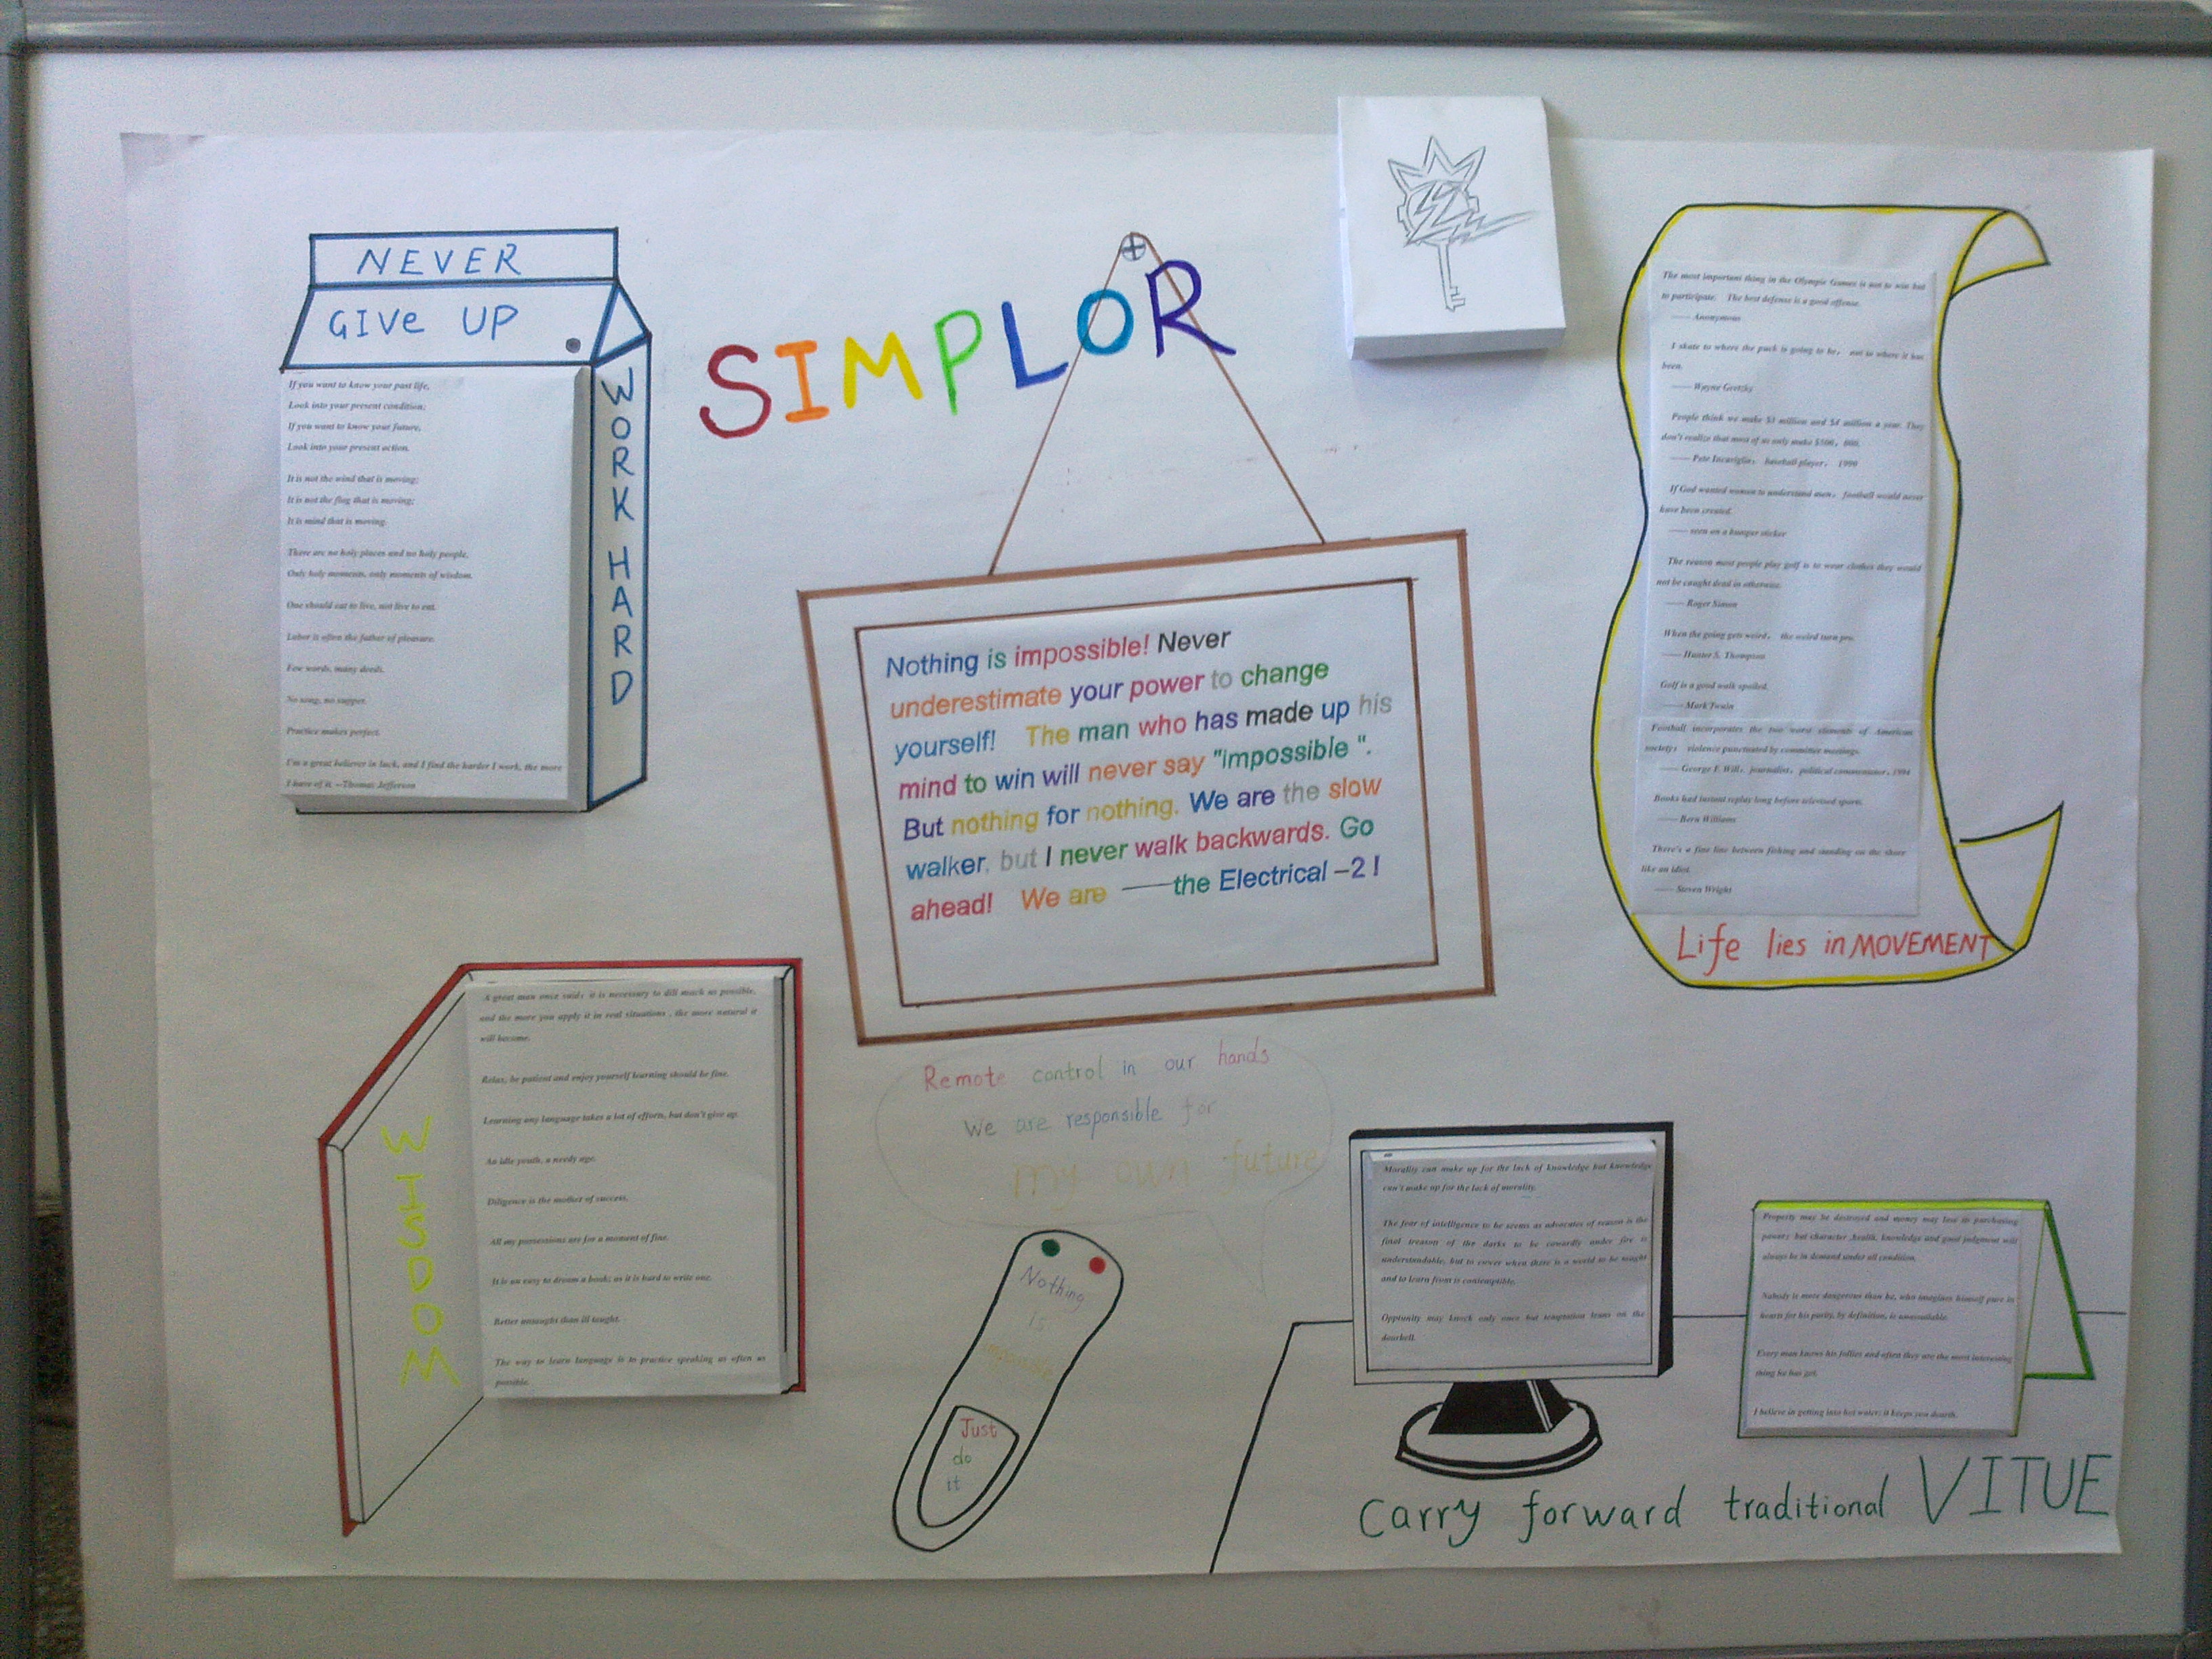 NEVER
GIVE UP
WORK HARD
If you want to know your past life,
Look into your present condition;
If you want to know your future,
Look into your present action.
It is not the wind that is moving;
It is not the flag that is moving;
It is mind that is moving.
There are no holy places and no holy people,
Only holy moments, only moments of wisdom.
One should eat to live, not live to eat.
Labor is often the father of pleasure.
Few words, many deeds.
No song, no supper.
Practice makes perfect.
I'm a great believer in luck, and I find the harder I work, the more
I have of it. --Thomas Jefferson
SIMPLOR
Nothing is impossible! Never
underestimate your power to change
yourself! The man who has made up his
mind to win will never say "impossible ".
But nothing for nothing. We are the slow
walker, but I never walk backwards. Go
ahead! We are ——the Electrical –2 !
The most important thing in the Olympic Games is not to win but
to participate. The best defense is a good offense.
—— Anonymous
I skate to where the puck is going to be, not to where it has
been.
—— Wayne Gretzky
People think we make $3 million and $4 million a year. They
don't realize that most of us only make $500, 000.
—— Pete Incaviglia, baseball player, 1990
If God wanted women to understand men, football would never
have been created.
—— seen on a bumper sticker
The reason most people play golf is to wear clothes they would
not be caught dead in otherwise.
—— Roger Simon
When the going gets weird, the weird turn pro.
—— Hunter S. Thompson
Golf is a good walk spoiled.
—— Mark Twain
Football incorporates the two worst elements of American
society: violence punctuated by committee meetings.
—— George F. Will, journalist, political commentator, 1994
Books had instant replay long before televised sports.
—— Bern Williams
There's a fine line between fishing and standing on the shore
like an idiot.
—— Steven Wright
Life lies in MOVEMENT
WISDOM
A great man once said: it is necessary to dill much as possible,
and the more you apply it in real situations , the more natural it
will become.
Relax, be patient and enjoy yourself learning should be fine.
Learning any language takes a lot of efforts, but don't give up.
An idle youth, a needy age.
Diligence is the mother of success.
All my possessions are for a moment of fine.
It is an easy to dream a book; as it is hard to write one.
Better untaught than ill taught.
The way to learn language is to practice speaking as often as
possible.
Remote control in our hands
We are responsible for
my own future
Nothing
is
impossible
Just
do
it
Morality can make up for the lack of knowledge but knowledge
can't make up for the lack of morality.
The fear of intelligence to be seems as advocates of reason is the
final treason of the darks to be cowardly under fire is
understandable, but to cower when there is a world to be taught
and to learn from is contemptible.
Opptunity may knock only once but temptation leans on the
doorbell.
Property may be destroyed and money may lose its purchasing
power; but character ,health, knowledge and good judgment will
always be in demand under all condition.
Nobody is more dangerous than he, who imagines himself pure in
hearts for his purity, by definition, is unassailable.
Every man knows his follies and often they are the most interesting
thing he has got.
I believe in getting into hot water; it keeps you
Carry forward traditional VITUE